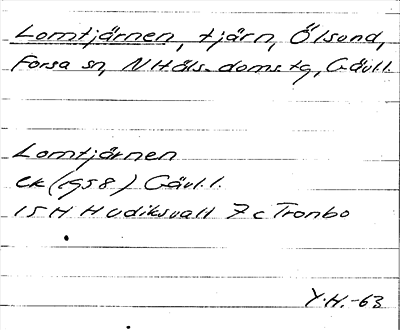 Lomtjärnen, tjärn, Ölsund,
Forsa sn, N.Häls. doms.tg, Gävl.l.
Lomtjärnen
Ek (1958) Gävl.l.
15H Hudiksvall 7c Tronbo
Y.H.-63